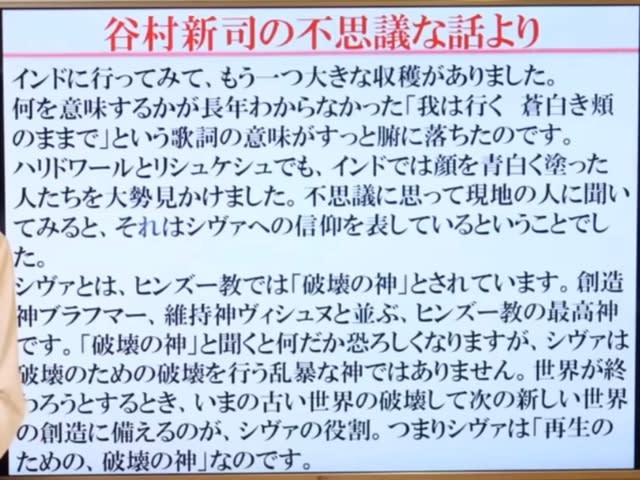 谷村新司の不思議な話より
インドに行ってみて、もう一つ大きな収穫がありました。
何を意味するかが長年わからなかった「我は行く　蒼白き頬
のままで」という歌詞の意味がすっと腑に落ちたのです。
ハリドワールとリシュケシュでも、インドでは顔を青白く塗った
人たちを大勢見かけました。不思議に思って現地の人に聞い
てみると、それはシヴァへの信仰を表しているということでし
た。
シヴァとは、ヒンズー教では「破壊の神」とされています。創造
神ブラフマー、維持神ヴィシュヌと並ぶ、ヒンズー教の最高神
です。「破壊の神」と聞くと何だか恐ろしくなりますが、シヴァは
破壊のための破壊を行う乱暴な神ではありません。世界が終
わろうとするとき、いまの古い世界の破壊して次の新しい世界
の創造に備えるのが、シヴァの役割。つまりシヴァは「再生の
ための、破壊の神」なのです。